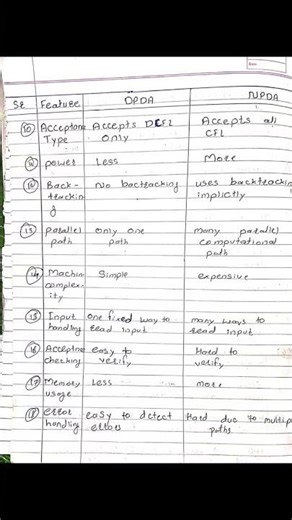 Date
Sr Feature DPDA NPDA
10 Acceptance Accepts DCFL Accepts all
Type only CFL
11 power Less More
12 Back- No bactracking uses backtrackin
trackin implictly
g
13 parallel only one many parallel
path path computational
path
14 Machin Simple expensive
complex-
ity
15 Input one fixed way to many ways to
handling read input read input
16 Acceptnc easy to Hard to
checking verify verify
17 Memory Less more
usage
18 error easy to detect Hard due to multip
handling errors paths